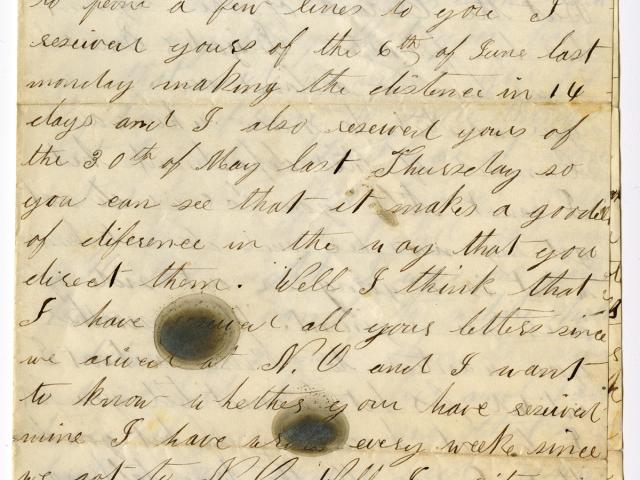 to penn a few lines to you I
reseived yours of the 6th of June last
monday making the distence in 14
days and I also reseived yours of
the 30th of May last Thursday so
you can see that it makes a good
of diference in the way that you
direct them. Well I think that
I have all your letters since
we arived at N. O and I want
to know whether your have reseived
mine I have every weeke since
we got to N. O. Well I